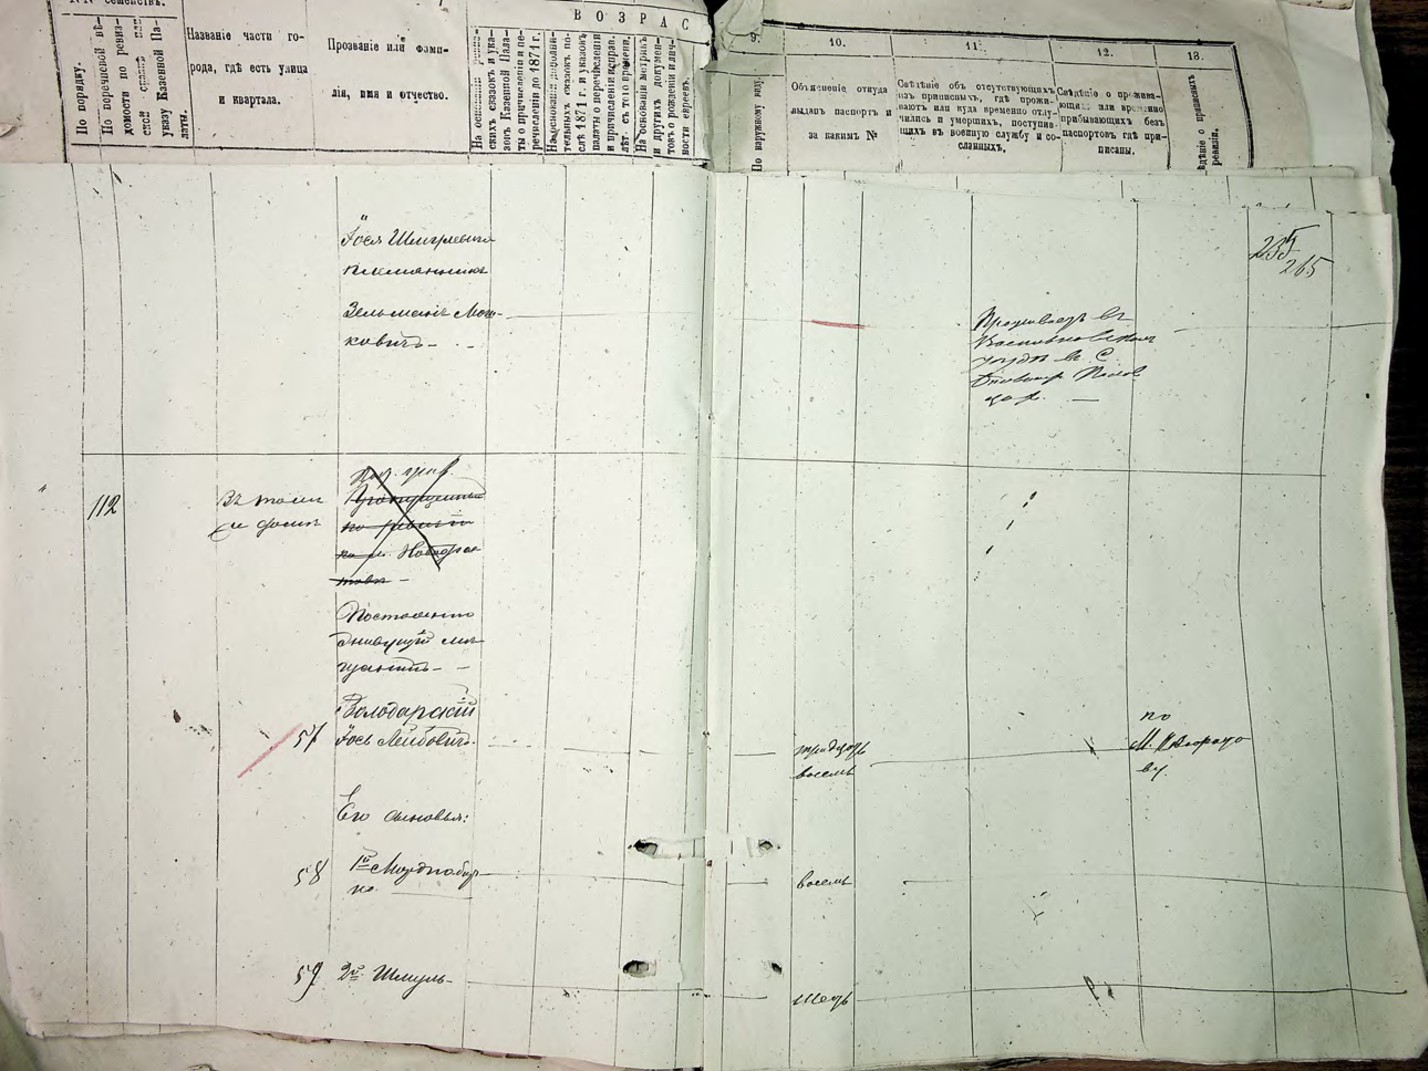 №№ семействъ.
По порядку.
По перечневой вѣ-
домости по ревиз-
ской
указу Казенной Па-
латы.
Названіе части го-
рода, гдѣ есть улица
и квартала.
Прозваніе или фами-
лія, имя и отчество.
ВОЗРАС
На основаніи ревиз-
скихъ сказокъ и ука-
зовъ Казенной Пала-
ты о причисленіи и пе-
речисленіи до 1871 г.
На основаніи дополни-
тельныхъ сказокъ по-
слѣ 1871 г. и указовъ
палаты о перечисленіи
и причисленіи исправ.
лѣт. съ того времени.
На основаніи метрикъ
и другихъ докумен-
товъ о рожденіи и лич-
ности евреевъ.
9.
По наружному виду.
10.
Объясненіе откуда
выданъ паспортъ и
за какимъ №
11.
Свѣдѣніе объ отсутствующихъ
изъ приписныхъ, гдѣ прожи-
ваютъ или куда временно отлу-
чились и умершихъ, поступив-
щихъ въ военную службу и со-
сланныхъ.
12.
Свѣдѣніе о прожива-
ющихъ или временно
прибывающихъ безъ
паспортовъ гдѣ при-
писаны.
13.
Свѣдѣніе о приписныхъ
ревизіи.
255
265
Іося Шмулевича
племянникъ
Зельманъ Мош-
ковичъ
Проживаетъ въ
Васильковскомъ
уѣздѣ въ с.
112
Въ томъ
же домѣ
Пропущенный
по ревизіи
по м.
Постоянно
живущій мѣ-
щанинъ
Володарскій
57 Іось Лейбовичъ
тридцать
восемь
по
М.
ву
Его сыновья:
58 1й
ко
восемь
59 2й Шмуль
шесть